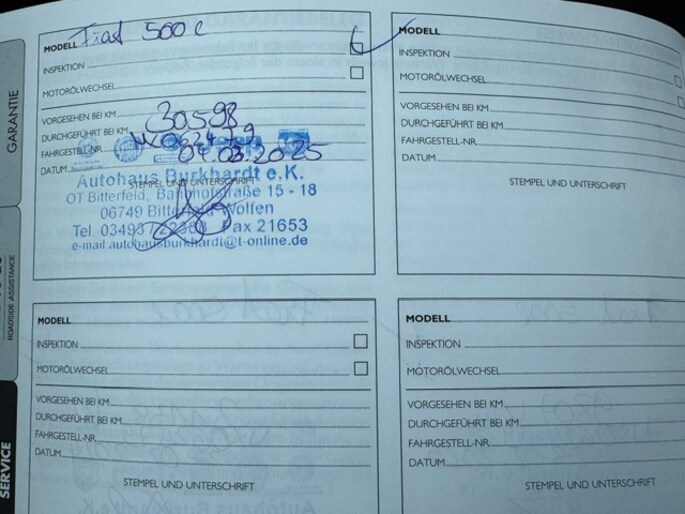 GARANTIE
ROADSIDE ASSISTANCE
SERVICE
MODELL Fiat 500 C
INSPEKTION
MOTORÖLWECHSEL
VORGESEHEN BEI KM
DURCHGEFÜHRT BEI KM 30598
FAHRGESTELL-NR.
DATUM 04.03.2025
STEMPEL UND UNTERSCHRIFT
Autohaus Burkhardt e.K.
OT Bitterfeld, Bahnhofstraße 15 - 18
06749 Bitterfeld-Wolfen
Tel. 03493 Fax 21653
e-mail:autohausburkhardt@t-online.de
MODELL
INSPEKTION
MOTORÖLWECHSEL
VORGESEHEN BEI KM
DURCHGEFÜHRT BEI KM
FAHRGESTELL-NR.
DATUM
STEMPEL UND UNTERSCHRIFT
MODELL
INSPEKTION
MOTORÖLWECHSEL
VORGESEHEN BEI KM
DURCHGEFÜHRT BEI KM
FAHRGESTELL-NR.
DATUM
STEMPEL UND UNTERSCHRIFT
MODELL
INSPEKTION
MOTORÖLWECHSEL
VORGESEHEN BEI KM
DURCHGEFÜHRT BEI KM
FAHRGESTELL-NR.
DATUM
STEMPEL UND UNTERSCHRIFT